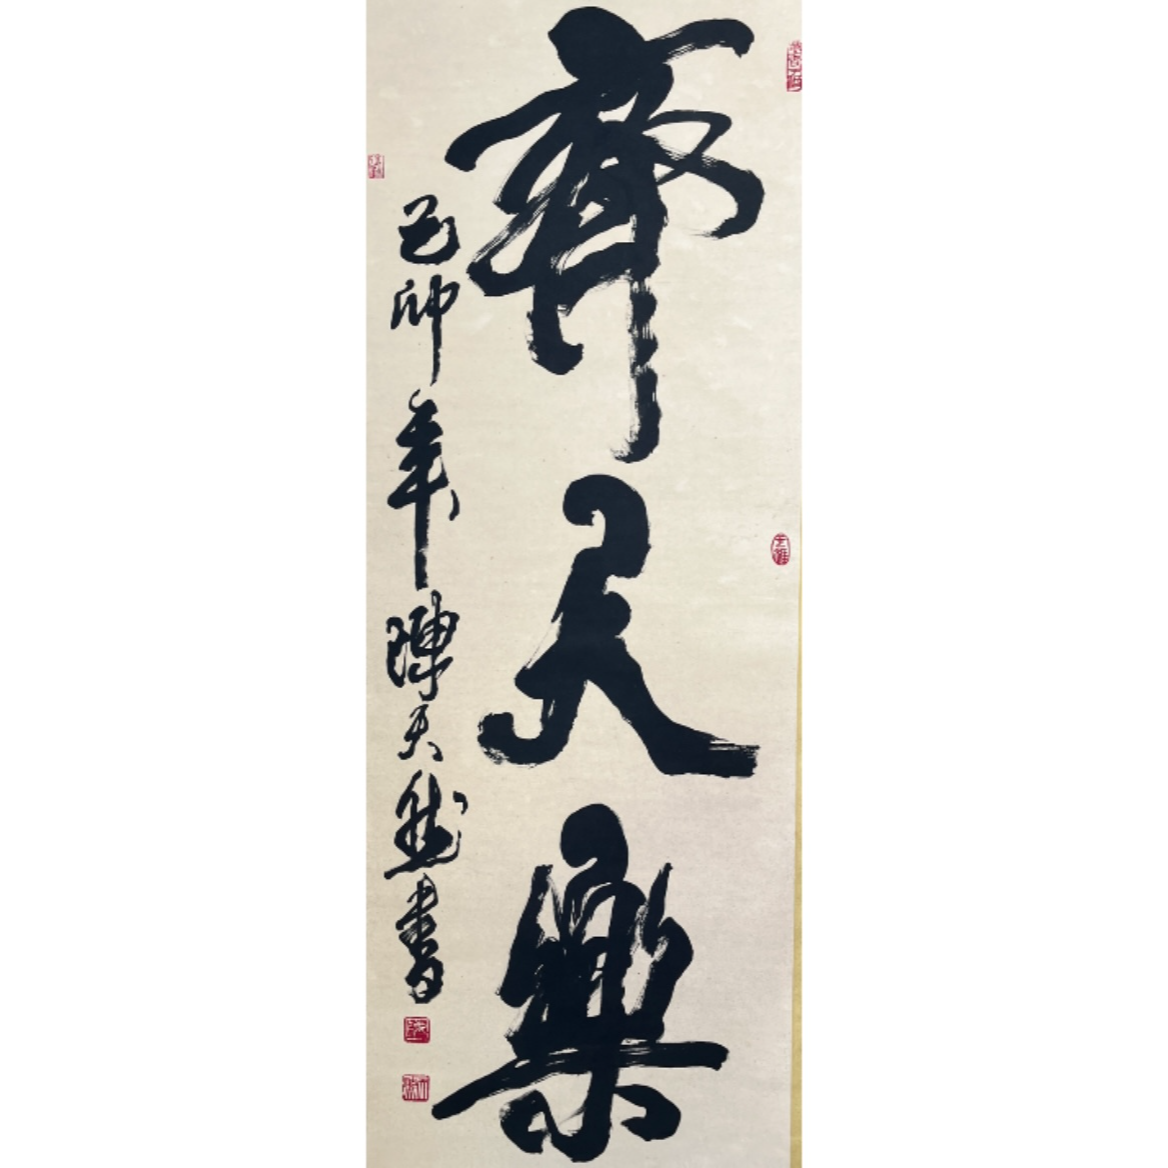 齊天樂
己卯年陳天然書